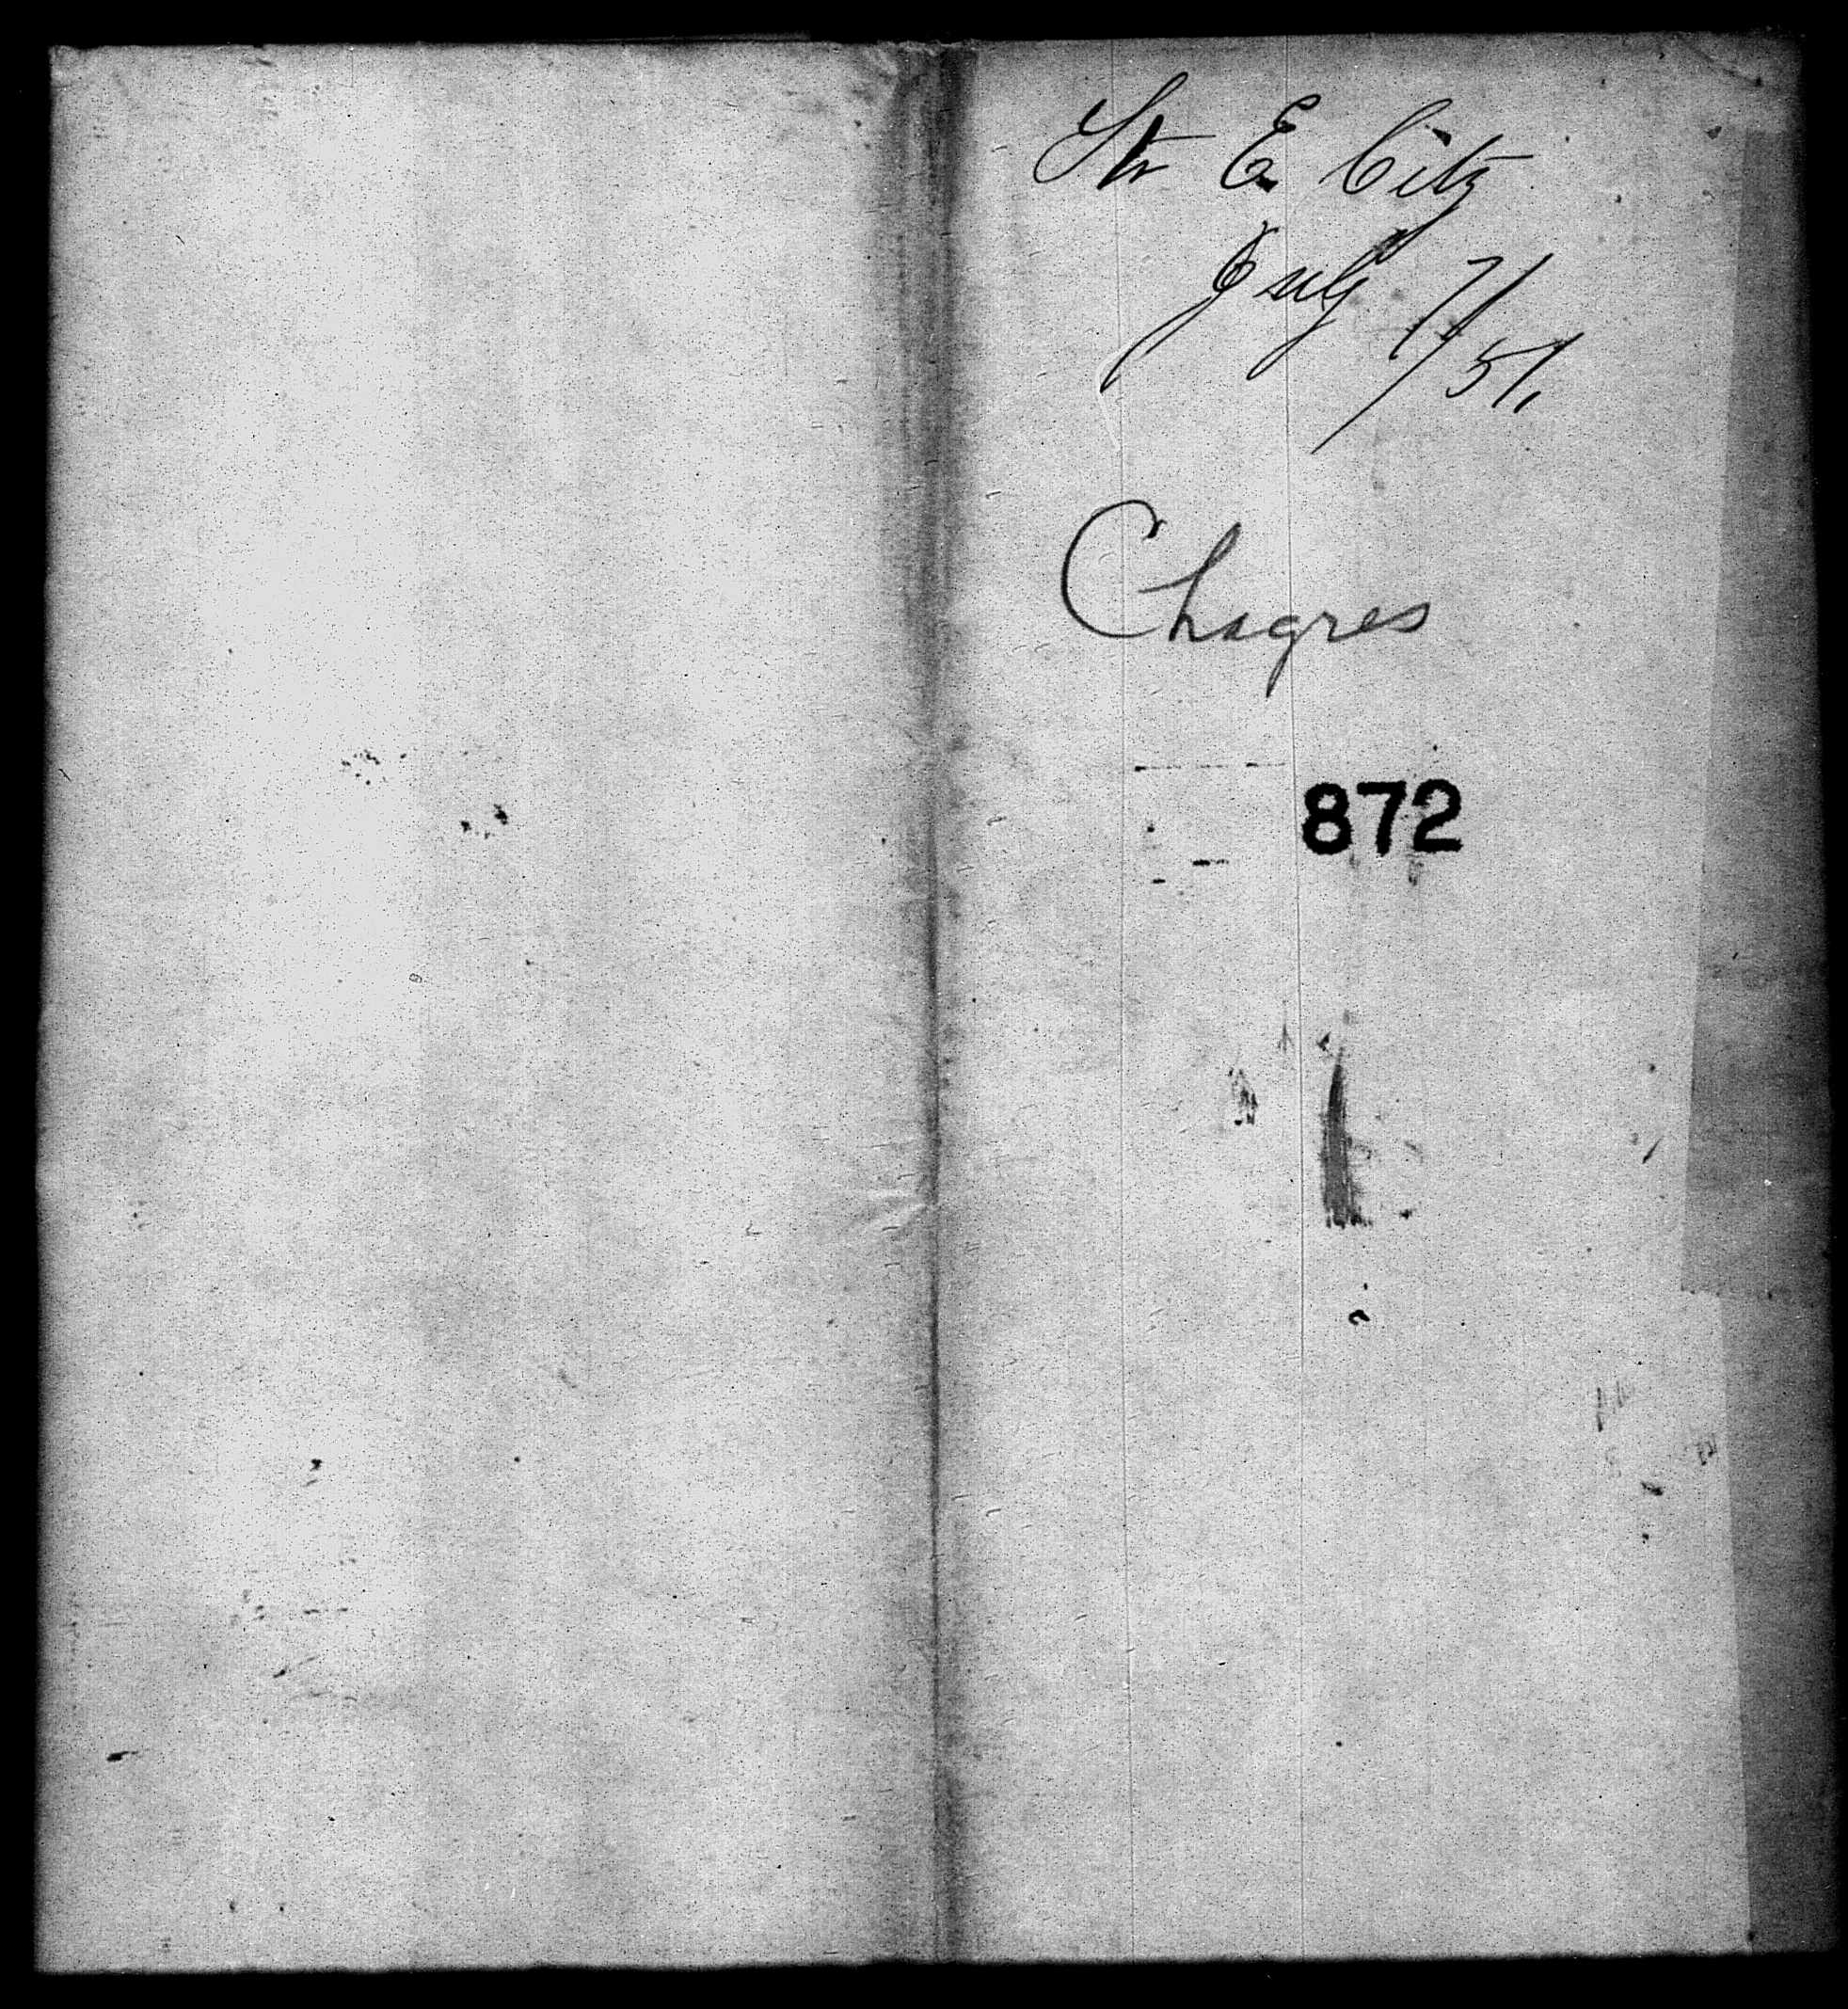 Str E. City
July 7/51,
Chagres
872